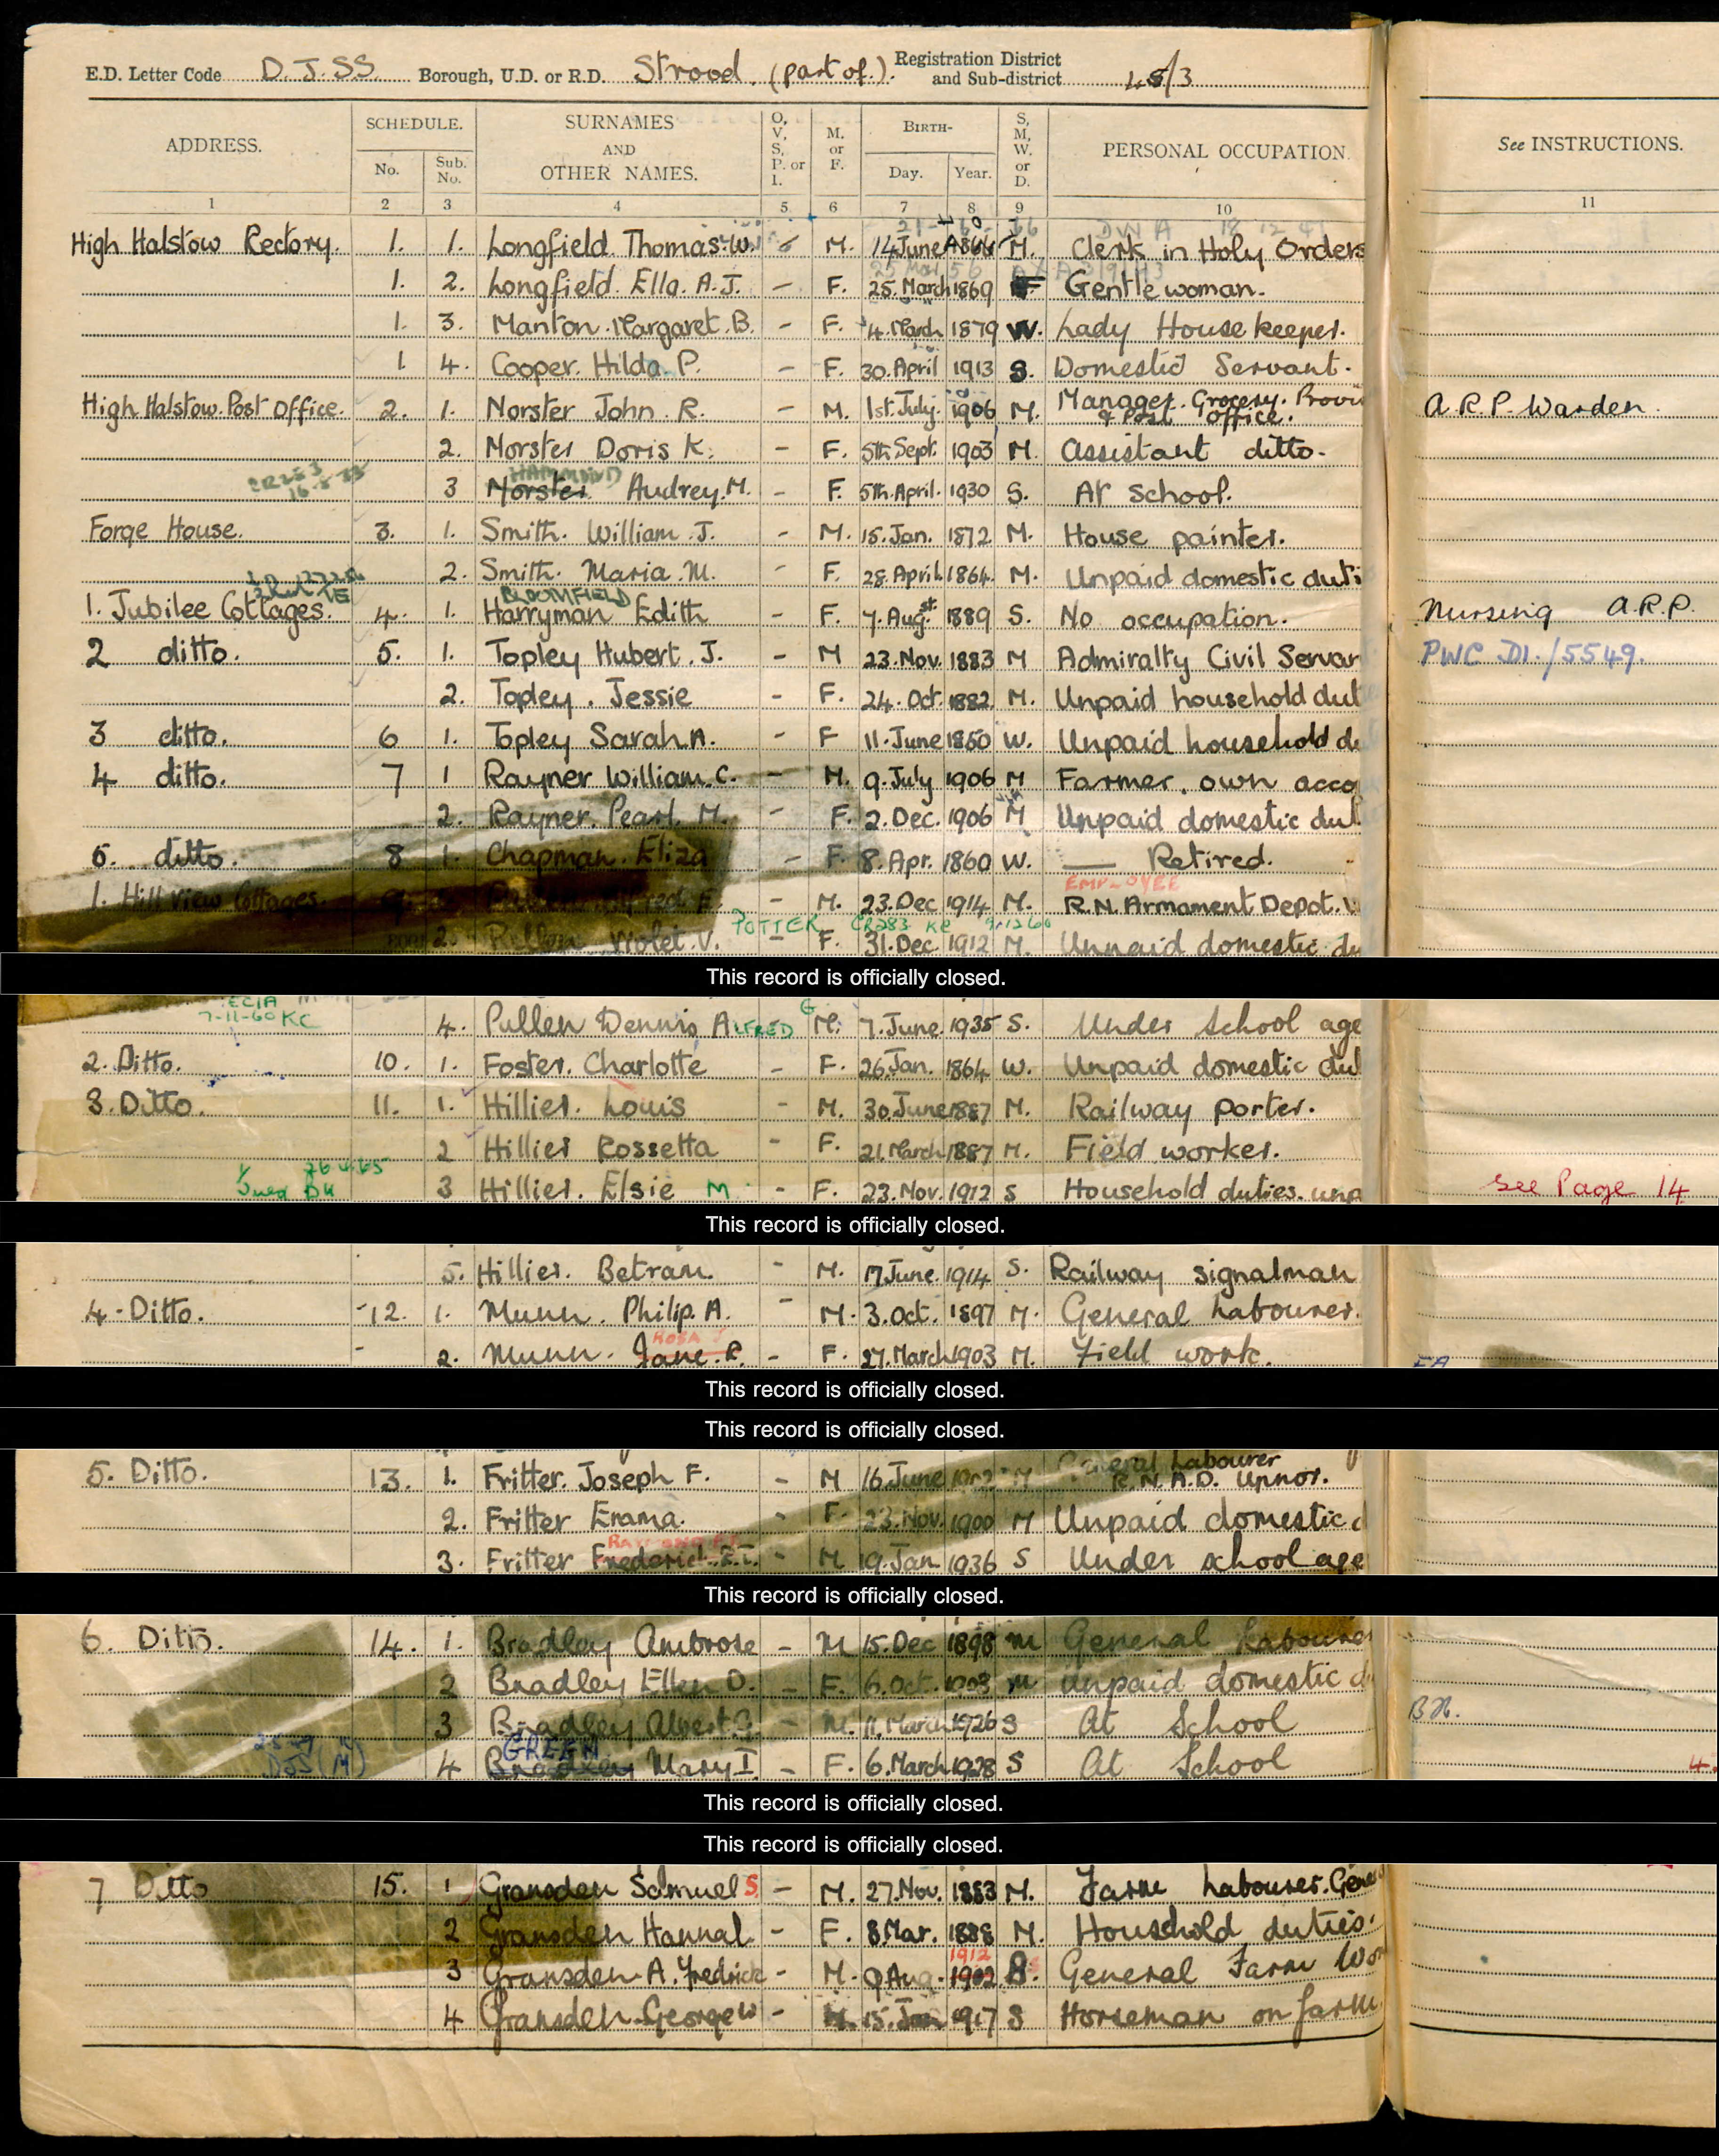 E.D. Letter Code D.J.SS Borough, U.D. or R.D. Strood. (part of.). Registration District and Sub-district 48/3
ADDRESS. SCHEDULE. No. Sub. No. SURNAMES AND OTHER NAMES. O, V, S, P. or I. M. or F. BIRTH- Day. Year. S, M, W. or D. PERSONAL OCCUPATION. See INSTRUCTIONS.
1 2 3 4 5 6 7 8 9 10 11
High Halstow Rectory. 1. 1. Longfield Thomas. W. M. 14 June 1866 M. Clerk in Holy Orders
1. 2. Longfield. Ella. A.J. - F. 25. March 1869 Gentlewoman.
1. 3. Manton. Margaret. B. - F. 4. March 1879 W. Lady Housekeeper.
1 4. Cooper. Hilda. P. - F. 30. April 1913 S. Domestic Servant.
High Halstow. Post Office. 2. 1. Norster John. R. - M. 1st. July. 1906 M. Manager. Grocery. Provi & Post Office. A.R.P. Warden.
2. Norster Doris K. - F. 5th Sept. 1903 M. Assistant ditto.
HAMMOND
3 Norster Audrey. M. - F. 5th. April. 1930 S. At School.
Forge House. 3. 1. Smith. William. J. - M. 15. Jan. 1872 M. House painter.
2. Smith. Maria. M. - F. 28. April. 1864. M. Unpaid domestic duti
BLOOMFIELD
1. Jubilee Cottages. 4. 1. Harryman Edith - F. 7. Aug st. 1889 S. No occupation. Nursing A.R.P.
2 ditto. 5. 1. Topley Hubert. J. - M 23. Nov. 1883 M Admiralty Civil Servan PWC D1./5549.
2. Topley. Jessie - F. 24. Oct. 1882. M. Unpaid household dut
3 ditto. 6 1. Topley Sarah A. - F 11. June 1850 W. Unpaid household du
4 ditto. 7 1 Rayner William. C. - M. 9. July 1906 M Farmer. own acco
2. Rayner. Pearl. M. - F. 2. Dec. 1906 M Unpaid domestic dut
5. ditto. 8 1. Chapman. Eliza - F. 8. Apr. 1860 W. Retired.
EMPLOYEE
1. Hill View Cottages. 9. - M. 23. Dec 1914 M. R.N. Armament Depot.
POTTER CR283 KC 9.12.60
2. Pullen Violet. V. F. 31. Dec 1912 M. Unpaid domestic du
This record is officially closed.
7-11-60 KC
4. Pullen Dennis ALFRED G - M. 7. June. 1935 S. Under school age
2. Ditto. 10. 1. Foster. Charlotte - F. 26. Jan. 1864 W. Unpaid domestic dut
3. Ditto. 11. 1. Hillier. Louis - M. 30. June 1887 M. Railway porter.
2 Hillier Rossetta - F. 21. March 1887 M. Field worker.
3 Hillier. Elsie M - F. 23. Nov. 1912 S Household duties. unpa See Page 14
This record is officially closed.
5. Hillier. Betram. - M. 17 June. 1914 S. Railway signalman
4. Ditto. 12. 1. Munn. Philip. A. - M. 3. Oct. 1897 M. General labourer.
ROSA J
2. Munn. Jane. R. - F. 27. March 1903 M. Field work.
This record is officially closed.
This record is officially closed.
5. Ditto. 13. 1. Fritter. Joseph F. - M 16. June 1902 M General Labourer R.N.A.D. Upnor.
2. Fritter Emma. - F. 23. Nov. 1900 M Unpaid domestic d
3. Fritter Frederick. - M 19. Jan 1936 S Under school age
This record is officially closed.
6. Ditto. 14. 1. Bradley Ambrose - M 15. Dec 1898 M General Labourer
2 Bradley Ellen D. - F. 6. Oct. 1903 M Unpaid domestic d
3 Bradley Albert. - M. 11. March 1926 S At School B.H.
GREEN
4 Bradley Mary I. - F. 6. March 1928 S At School 4.
This record is officially closed.
This record is officially closed.
7 Ditto 15. 1 Gransden Samuel S. - M. 27. Nov. 1883 M. Farm labourer. Gene
2 Gransden Hannah - F. 8. Mar. 1888 M. Household duties.
1912
3 Gransden. A. Fredrick - M. 9 Aug. 1902 General Farm Wor
4 Gransden. George W - M. 15. Jan 1917 S Horseman on farm